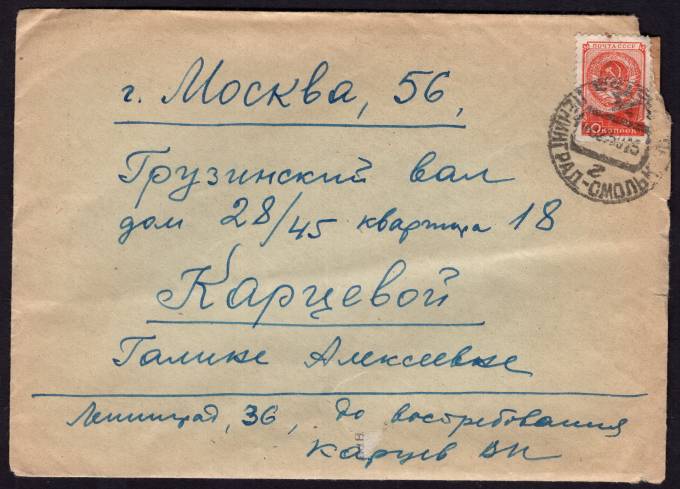 г. Москва, 56,
Грузинский вал
дом 28/45 квартира 18
Карцевой
Галине Алексеевне
Ленинград, 36, до востребования
Карцев ВП
ПОЧТА СССР
40 КОПЕЕК
ЛЕНИНГРАД-СМОЛЬН
2